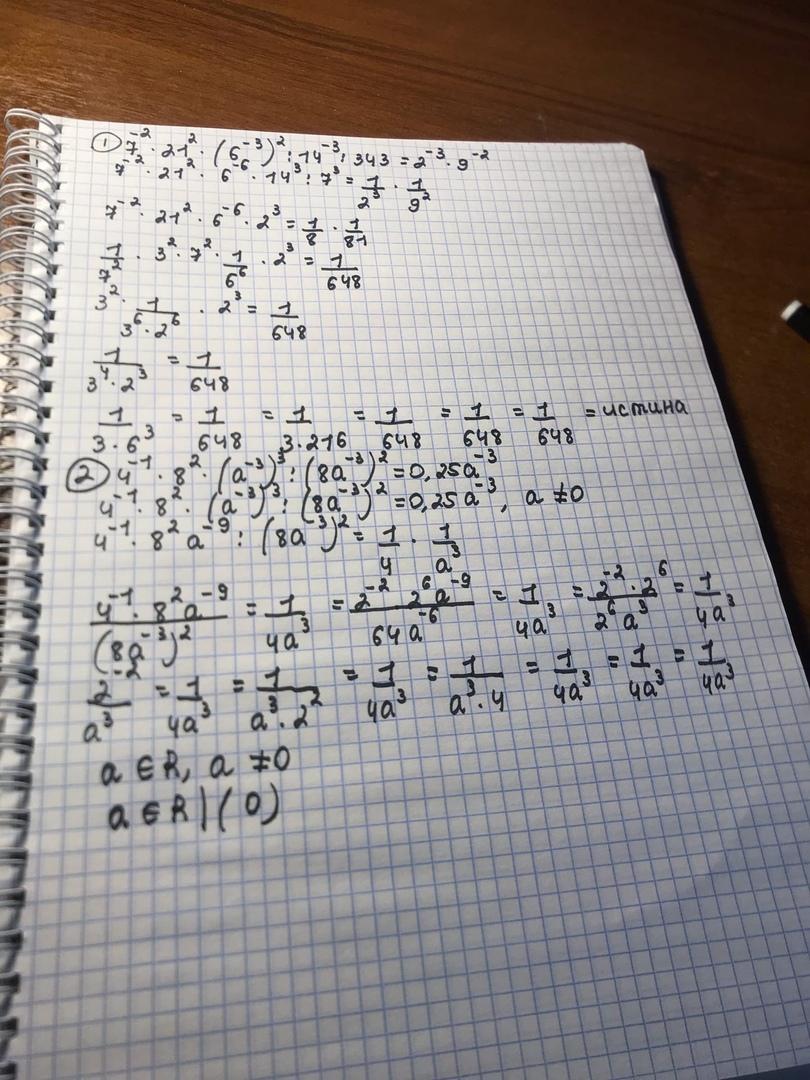 ① 7⁻² · 21² · (6⁻³)² : 14⁻³ : 343 = 2⁻³ · 9⁻²
7⁻² · 21² · 6⁻⁶ · 14³ : 7³ = 1/2³ · 1/9²
7⁻² · 21² · 6⁻⁶ · 2³ = 1/8 · 1/81
1/7² · 3² · 7² · 1/6⁶ · 2³ = 1/648
3² · 1/(3⁶ · 2⁶) · 2³ = 1/648
1/(3⁴ · 2³) = 1/648
1/(3 · 6³) = 1/648 = 1/(3 · 216) = 1/648 = 1/648 = 1/648 = истина
② 4⁻¹ · 8² · (a⁻³)³ : (8a⁻³)² = 0,25a⁻³
4⁻¹ · 8² · (a⁻³)³ : (8a⁻³)² = 0,25a⁻³, a ≠ 0
4⁻¹ · 8² a⁻⁹ : (8a⁻³)² = 1/4 · 1/a³
(4⁻¹ · 8² a⁻⁹)/(8a⁻³)² = 1/(4a³) = (2⁻² · 2⁶ a⁻⁹)/(64a⁻⁶) = 1/(4a³) = (2⁻² · 2⁶)/(2⁶ a³) = 1/(4a³)
2⁻²/a³ = 1/(4a³) = 1/(a³ · 2²) = 1/(4a³) = 1/(a³ · 4) = 1/(4a³) = 1/(4a³) = 1/(4a³)
a ∈ R, a ≠ 0
a ∈ R | (0)